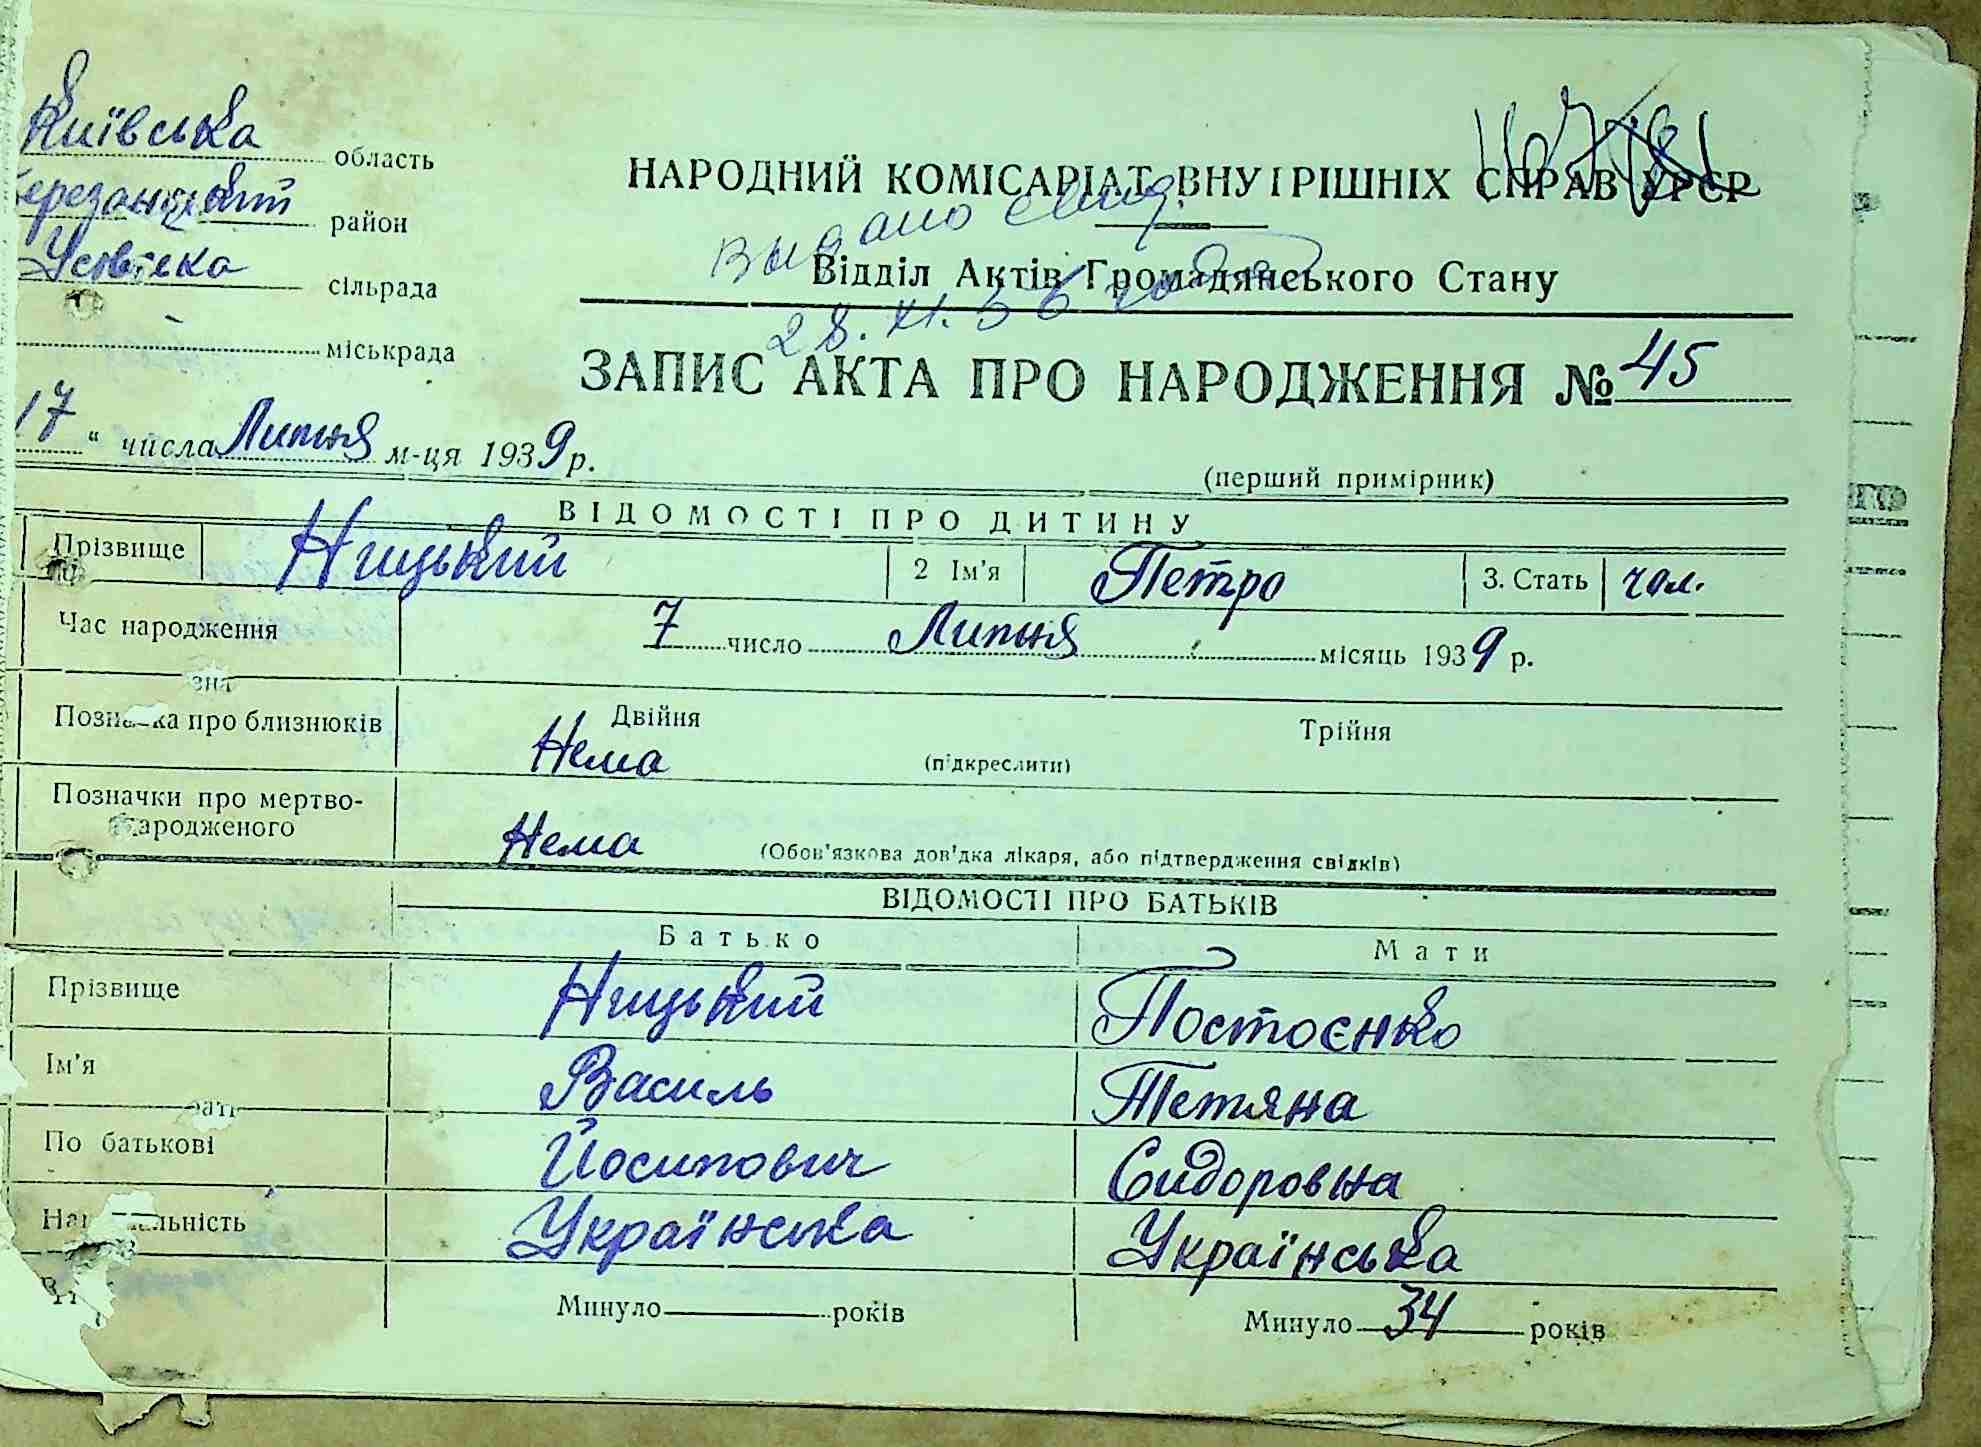 Київська область
Березанський район
Усівска сільрада
міськрада
НАРОДНИЙ КОМІСАРІАТ ВНУТРІШНІХ СПРАВ УРСР
Выдано
Відділ Актів Громадянського Стану
28. XI. 56 года
ЗАПИС АКТА ПРО НАРОДЖЕННЯ № 45
17 " числа Липня м-ця 1939 р.
(перший примірник)
ВІДОМОСТІ ПРО ДИТИНУ
Прізвище Ницький 2 Ім'я Петро 3. Стать чол.
Час народження 7 число Липня місяць 1939 р.
Позначка про близнюків Двійня Трійня
Нема (підкреслити)
Позначки про мертво-
народженого Нема (Обов'язкова довідка лікаря, або підтвердження свідків)
ВІДОМОСТІ ПРО БАТЬКІВ
Батько Мати
Прізвище Ницький Постоєнко
Ім'я Василь Тетяна
По батькові Йосипович Сидоровна
Національність Українська Українська
Минуло років Минуло 34 років